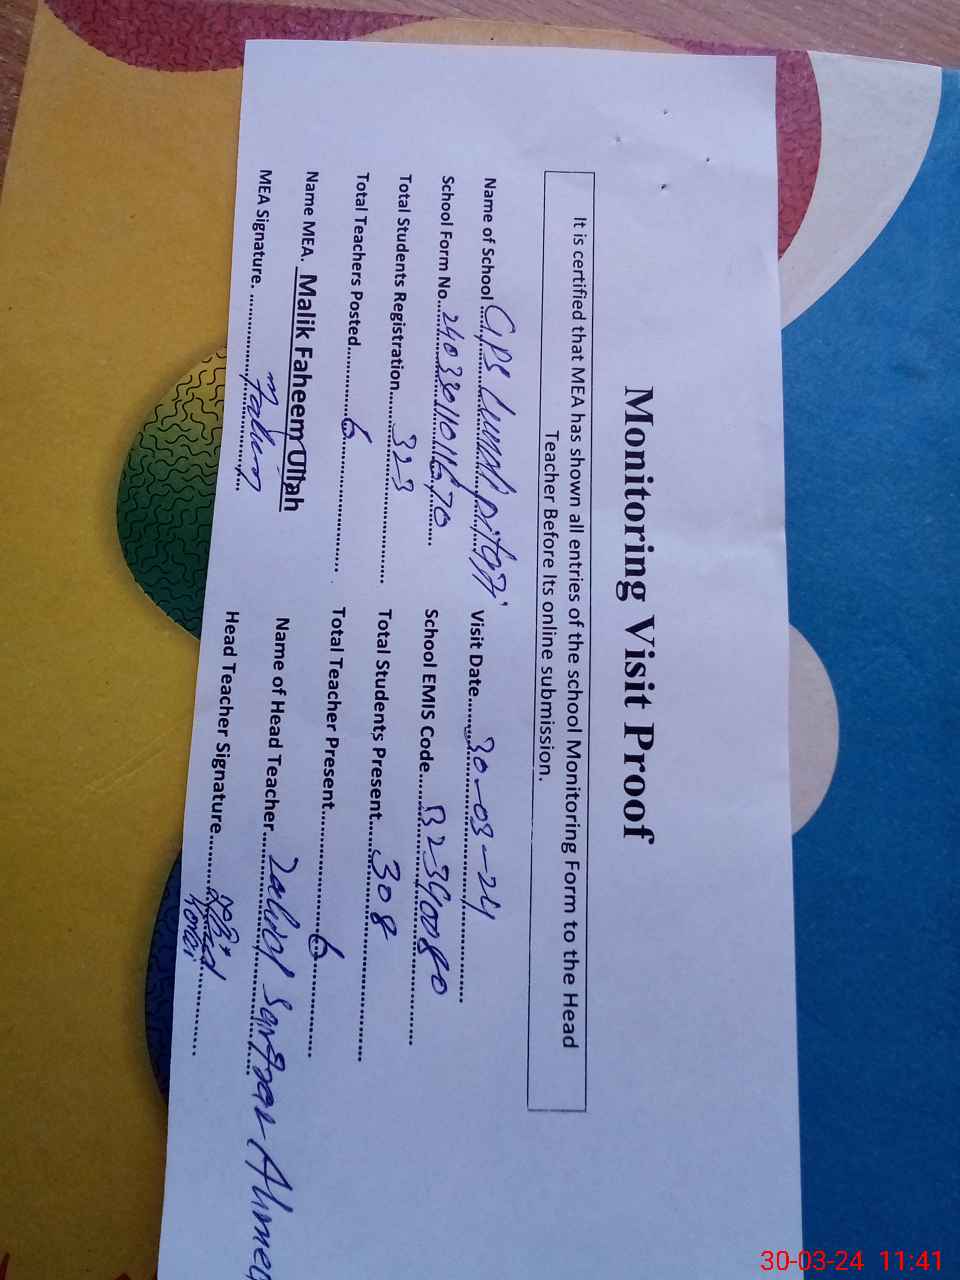 Monitoring Visit Proof
It is certified that MEA has shown all entries of the school Monitoring Form to the Head
Teacher Before Its online submission.
Name of School GPS Lundi pitafi Visit Date 30-03-24
School Form No. School EMIS Code
Total Students Registration 323 Total Students Present 308
Total Teachers Posted 6 Total Teacher Present 6
Name MEA. Malik Faheem Ullah Name of Head Teacher Ahmed
MEA Signature. Faheem Head Teacher Signature
30-03-24 11:41